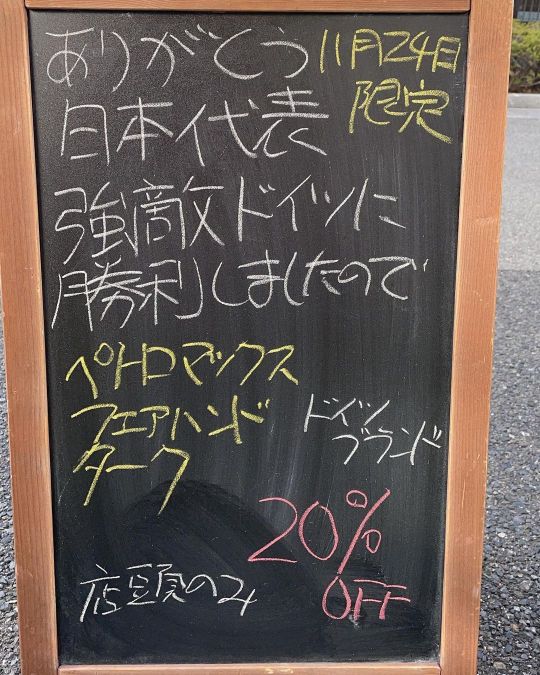 ありがとう
11月24日
限定
日本代表
強敵ドイツに
勝利しましたので
ペトロマックス
フェアハンド
ターク
ドイツ
ブランド
20%
OFF
店頭のみ